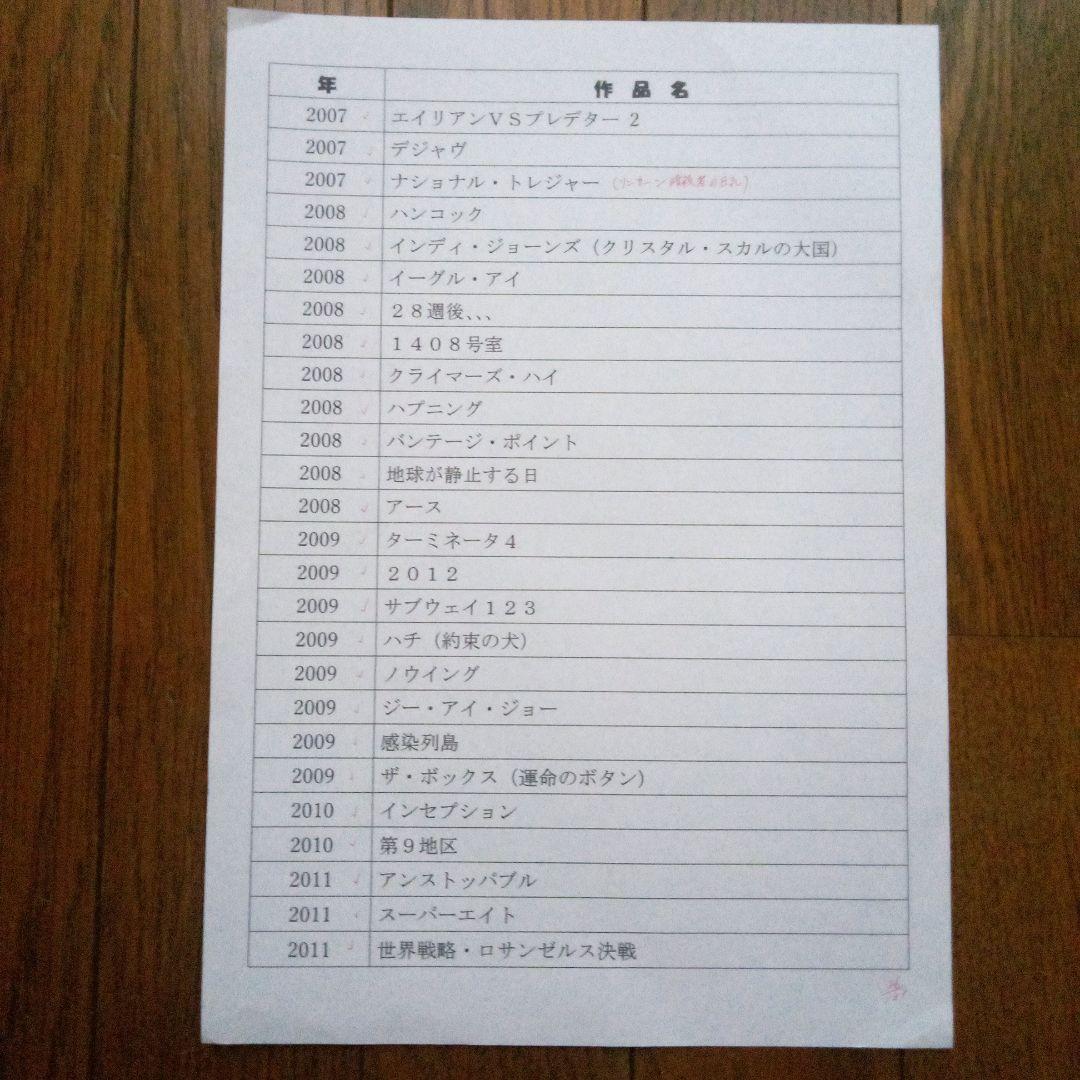 年 作品名
2007 エイリアンＶＳプレデター ２
2007 デジャヴ
2007 ナショナル・トレジャー (リンカーン暗殺者の日記)
2008 ハンコック
2008 インディ・ジョーンズ（クリスタル・スカルの大国）
2008 イーグル・アイ
2008 ２８週後、、、
2008 １４０８号室
2008 クライマーズ・ハイ
2008 ハプニング
2008 バンテージ・ポイント
2008 地球が静止する日
2008 アース
2009 ターミネータ４
2009 ２０１２
2009 サブウェイ１２３
2009 ハチ（約束の犬）
2009 ノウイング
2009 ジー・アイ・ジョー
2009 感染列島
2009 ザ・ボックス（運命のボタン）
2010 インセプション
2010 第９地区
2011 アンストッパブル
2011 スーパーエイト
2011 世界戦略・ロサンゼルス決戦